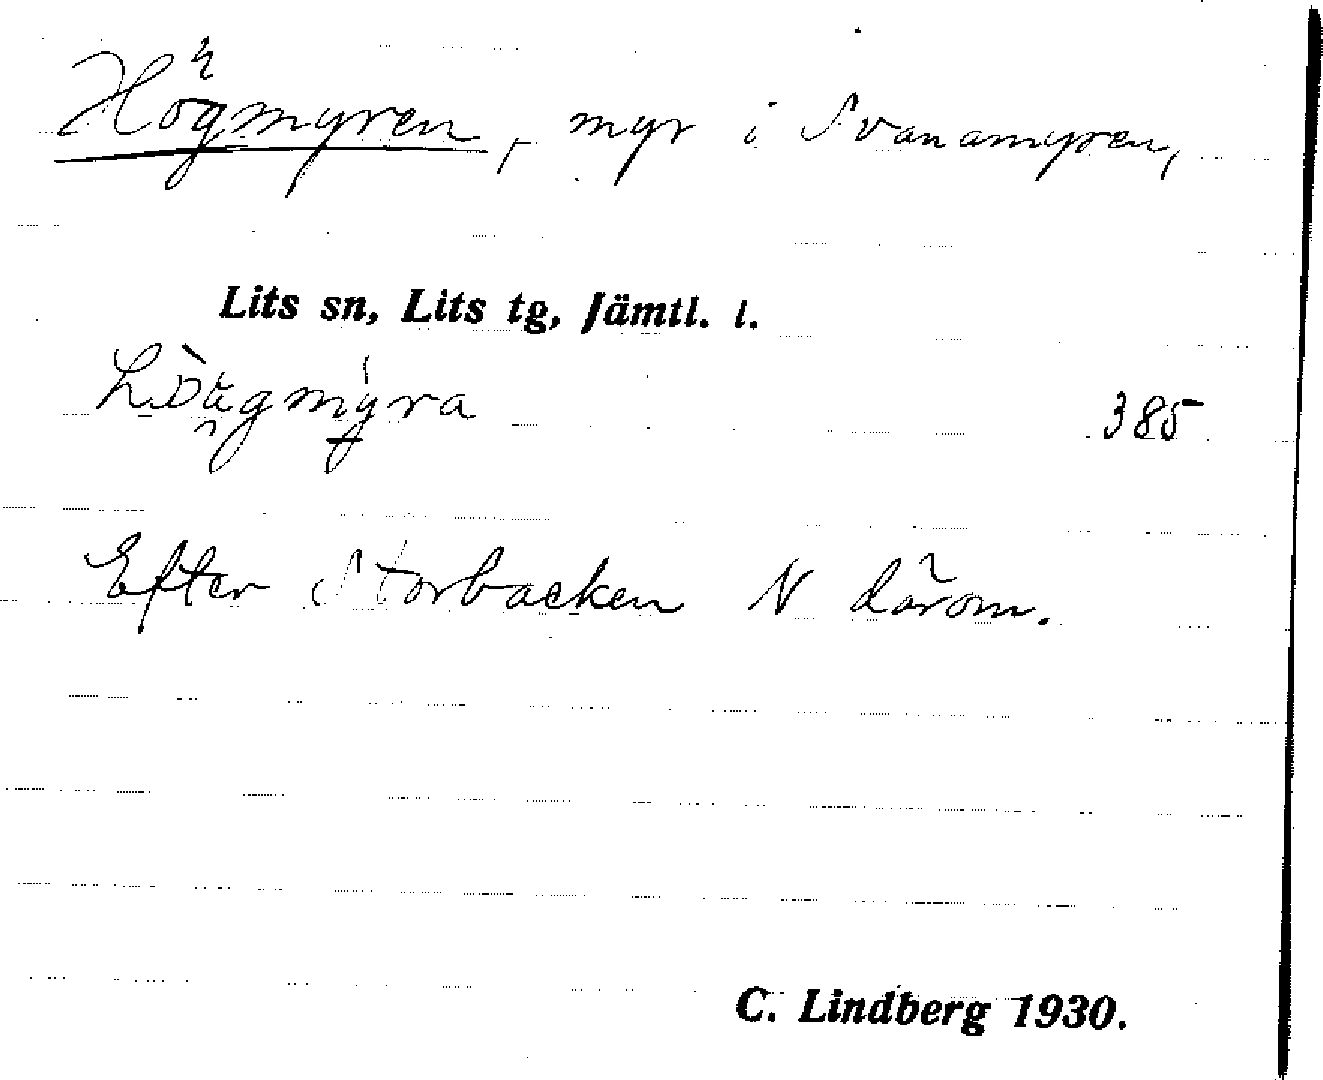 Högmyren, myr i Svanamyren,
Lits sn, Lits tg, Jämtl. l.
385
Efter Storbacken N därom.
C. Lindberg 1930.